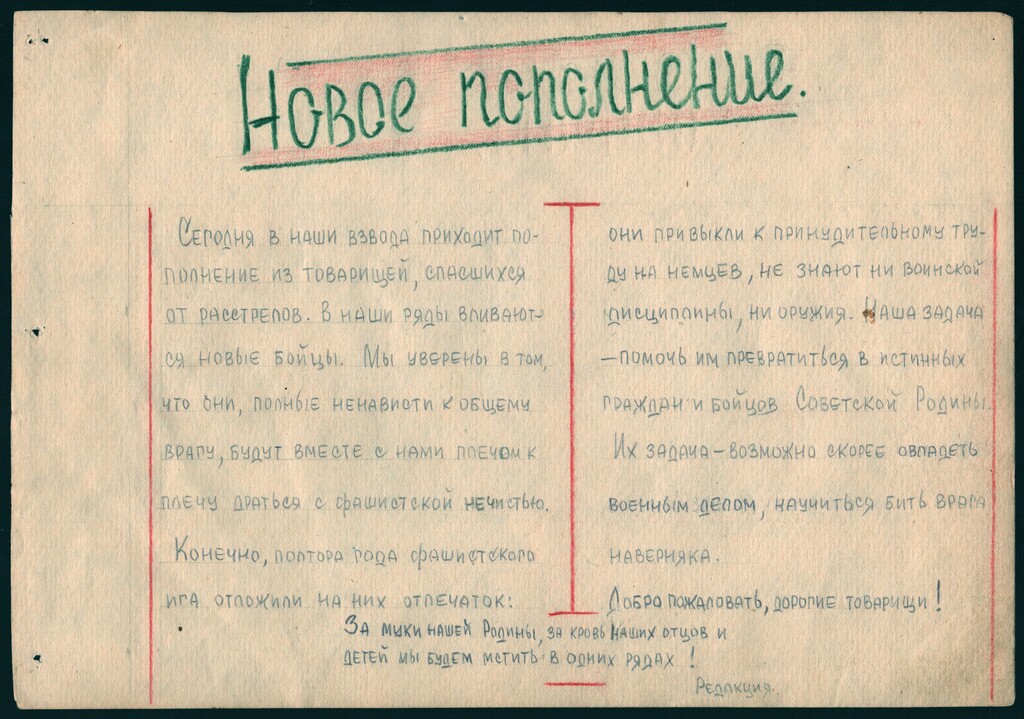 Новое пополнение.
Сегодня в наши взвода приходит по-
полнение из товарищей, спасшихся
от расстрелов. В наши ряды вливают-
ся новые бойцы. Мы уверены в том,
что они, полные ненависти к общему
врагу, будут вместе с нами плечом к
плечу драться с фашистской нечистью.
Конечно, полтора года фашистского
ига отложили на них отпечаток:
они привыкли к принудительному тру-
ду на немцев, не знают ни воинской
дисциплины, ни оружия. Наша задача
—помочь им превратиться в истинных
граждан и бойцов Советской Родины.
Их задача—возможно скорее овладеть
военным делом, научиться бить врага
наверняка.
Добро пожаловать, дорогие товарищи!
За муки нашей Родины, за кровь наших отцов и
детей мы будем мстить в одних рядах!
Редакция.